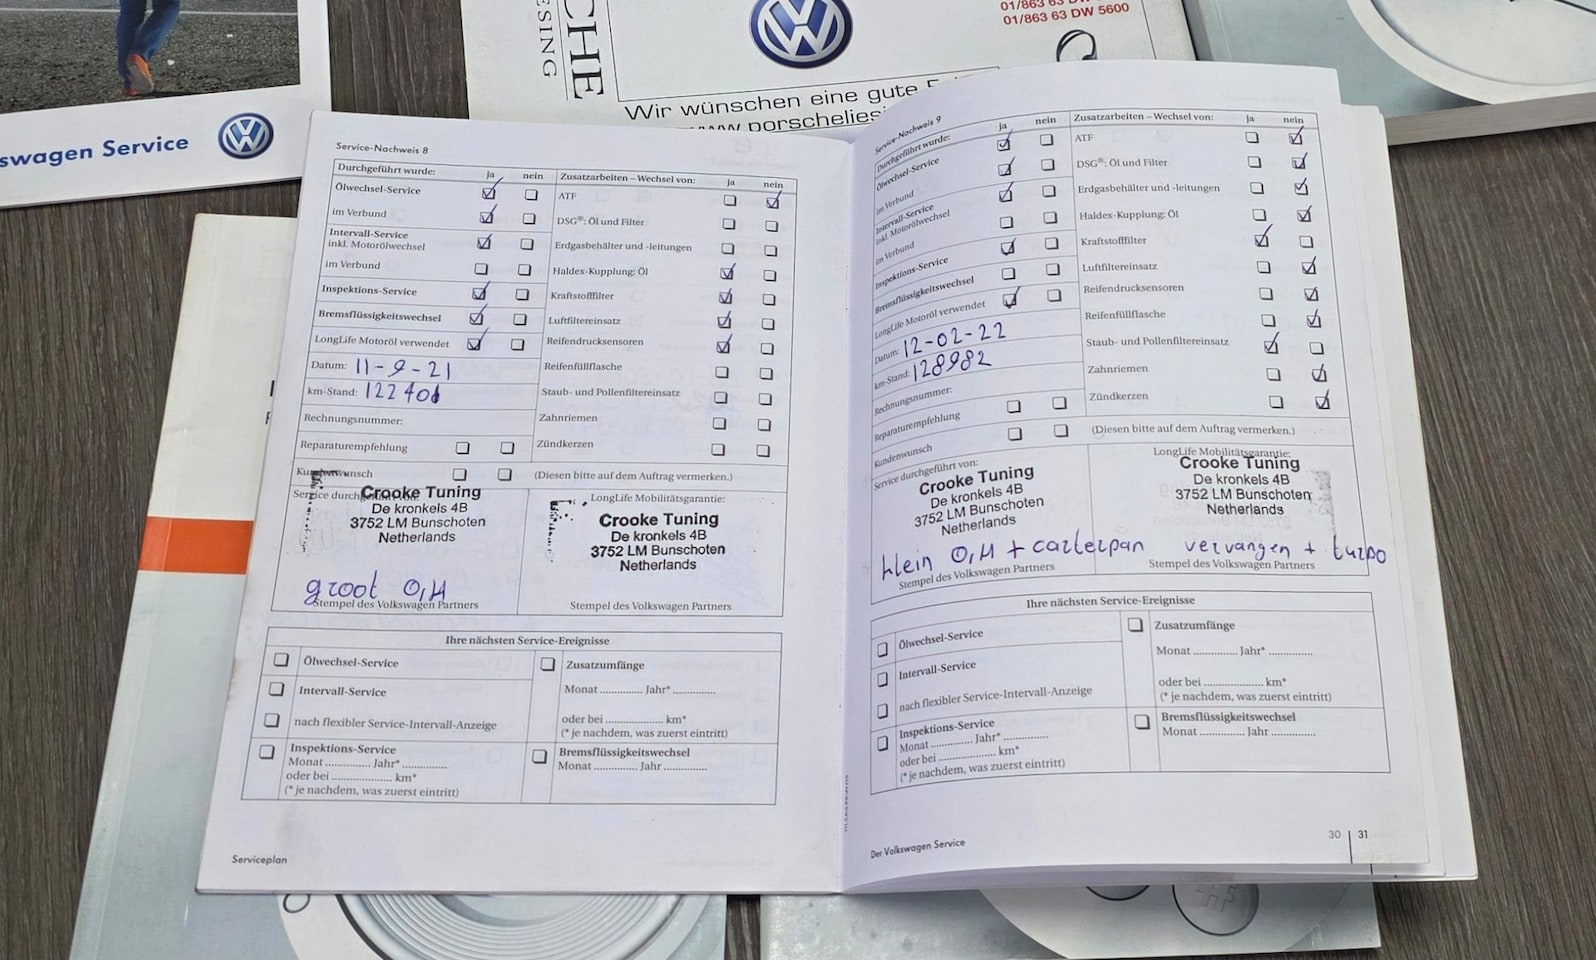 swagen Service
CHE
ESING
01/863 63 DW 5600
Wir wünschen eine gute F
www.porschelies
Service-Nachweis 8
Durchgeführt wurde: ja nein
Ölwechsel-Service
im Verbund
Intervall-Service
inkl. Motorölwechsel
im Verbund
Inspektions-Service
Bremsflüssigkeitswechsel
LongLife Motoröl verwendet
Datum: 11-9-21
km-Stand: 122401
Rechnungsnummer:
Reparaturempfehlung
Kundenwunsch
Zusatzarbeiten – Wechsel von: ja nein
ATF
DSG®: Öl und Filter
Erdgasbehälter und -leitungen
Haldex-Kupplung: Öl
Kraftstofffilter
Luftfiltereinsatz
Reifendrucksensoren
Reifenfüllflasche
Staub- und Pollenfiltereinsatz
Zahnriemen
Zündkerzen
(Diesen bitte auf dem Auftrag vermerken.)
Service durchgeführt von:
Crooke Tuning
De kronkels 4B
3752 LM Bunschoten
Netherlands
groot O,H
Stempel des Volkswagen Partners
LongLife Mobilitätsgarantie:
Crooke Tuning
De kronkels 4B
3752 LM Bunschoten
Netherlands
Stempel des Volkswagen Partners
Ihre nächsten Service-Ereignisse
Ölwechsel-Service
Intervall-Service
nach flexibler Service-Intervall-Anzeige
Inspektions-Service
Monat .............. Jahr* ..............
oder bei .................... km*
(* je nachdem, was zuerst eintritt)
Zusatzumfänge
Monat .............. Jahr* ..............
oder bei .................... km*
(* je nachdem, was zuerst eintritt)
Bremsflüssigkeitswechsel
Monat .............. Jahr ..............
Serviceplan
Service-Nachweis 9
Durchgeführt wurde: ja nein
Ölwechsel-Service
im Verbund
Intervall-Service
inkl. Motorölwechsel
im Verbund
Inspektions-Service
Bremsflüssigkeitswechsel
LongLife Motoröl verwendet
Datum: 12-02-22
km-Stand: 128982
Rechnungsnummer:
Reparaturempfehlung
Kundenwunsch
Zusatzarbeiten – Wechsel von: ja nein
ATF
DSG®: Öl und Filter
Erdgasbehälter und -leitungen
Haldex-Kupplung: Öl
Kraftstofffilter
Luftfiltereinsatz
Reifendrucksensoren
Reifenfüllflasche
Staub- und Pollenfiltereinsatz
Zahnriemen
Zündkerzen
(Diesen bitte auf dem Auftrag vermerken.)
Service durchgeführt von:
Crooke Tuning
De kronkels 4B
3752 LM Bunschoten
Netherlands
LongLife Mobilitätsgarantie:
Crooke Tuning
De kronkels 4B
3752 LM Bunschoten
Netherlands
klein O,H + carterpan vervangen + turbo
Stempel des Volkswagen Partners
Stempel des Volkswagen Partners
Ihre nächsten Service-Ereignisse
Ölwechsel-Service
Intervall-Service
nach flexibler Service-Intervall-Anzeige
Inspektions-Service
Monat .............. Jahr* ..............
oder bei .................... km*
(* je nachdem, was zuerst eintritt)
Zusatzumfänge
Monat .............. Jahr* ..............
oder bei .................... km*
(* je nachdem, was zuerst eintritt)
Bremsflüssigkeitswechsel
Monat .............. Jahr ..............
Der Volkswagen Service
30 | 31